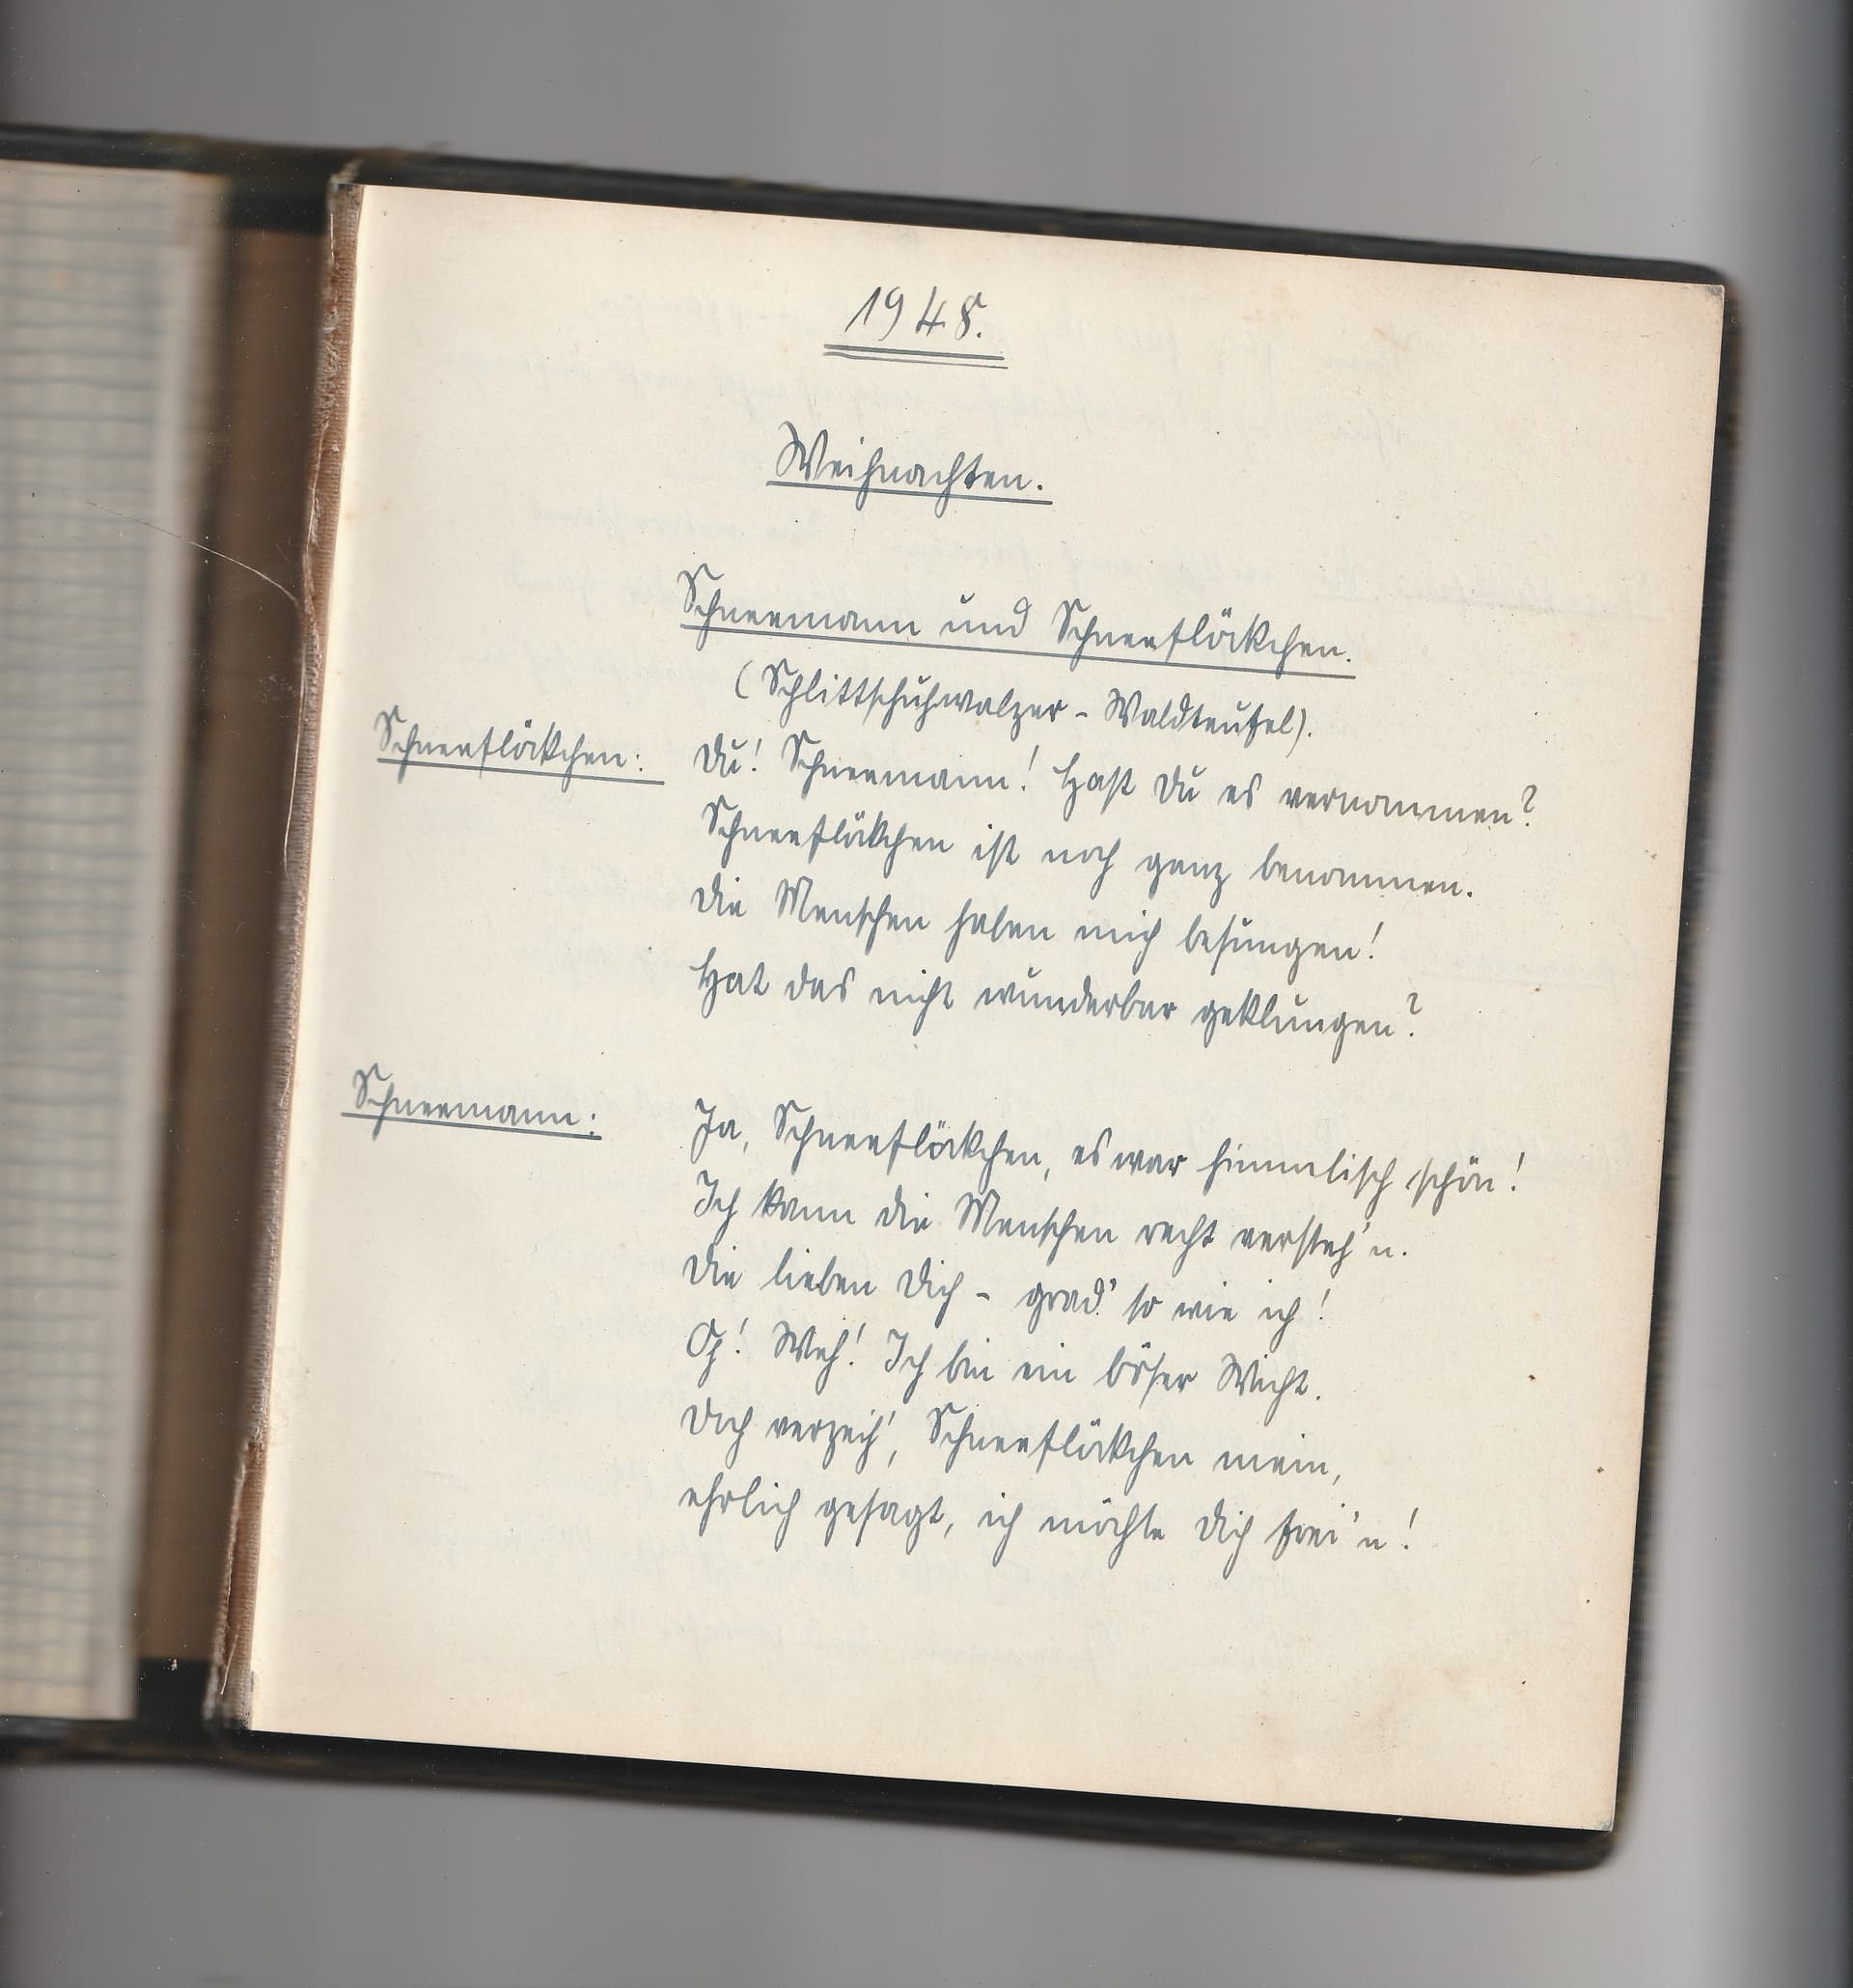 1948.
Weihnachten.
Schneemann und Schneeflöckchen.
(Schlittschuhwalzer - Waldteufel).
Schneeflöckchen: Du! Schneemann! Hast Du es vernommen?
Schneeflöckchen ist noch ganz benommen.
Die Menschen haben mich besungen!
Hat das nicht wunderbar geklungen?
Schneemann: Ja, Schneeflöckchen, es war himmlisch schön!
Ich kann die Menschen recht versteh'n.
Die lieben Dich - grad' so wie ich!
Oh! Weh! Ich bin ein böser Wicht.
Doch verzeih', Schneeflöckchen mein,
ehrlich gesagt, ich möchte Dich frei'n!